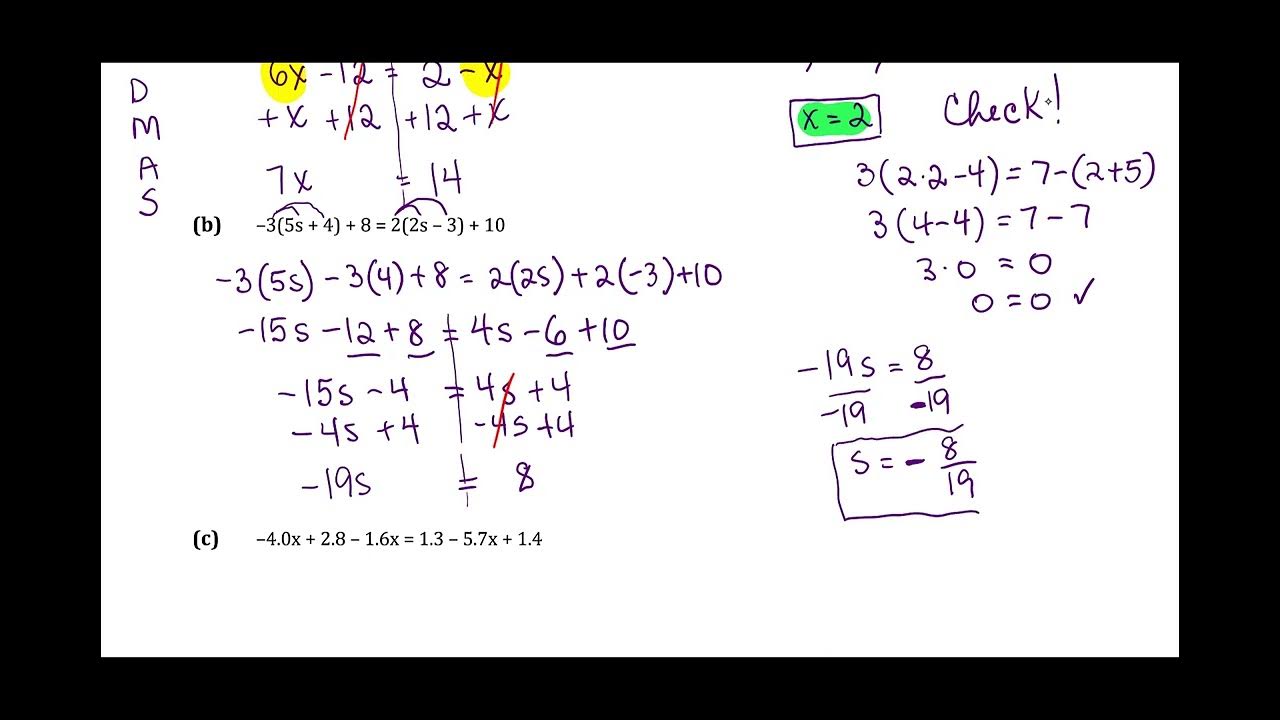 D
M
A
S
6x - 12 = 2 - x
+ x + 12 + 12 + x
7x = 14
x = 2
Check!
3(2·2-4) = 7-(2+5)
3(4-4) = 7-7
3·0 = 0
0 = 0 ✓
(b) –3(5s + 4) + 8 = 2(2s – 3) + 10
-3(5s) - 3(4) + 8 = 2(2s) + 2(-3) + 10
-15s - 12 + 8 = 4s - 6 + 10
-15s - 4 = 4s + 4
- 4s + 4 - 4s + 4
-19s = 8
-19s = 8
-19 -19
s = - 8/19
(c) –4.0x + 2.8 – 1.6x = 1.3 – 5.7x + 1.4